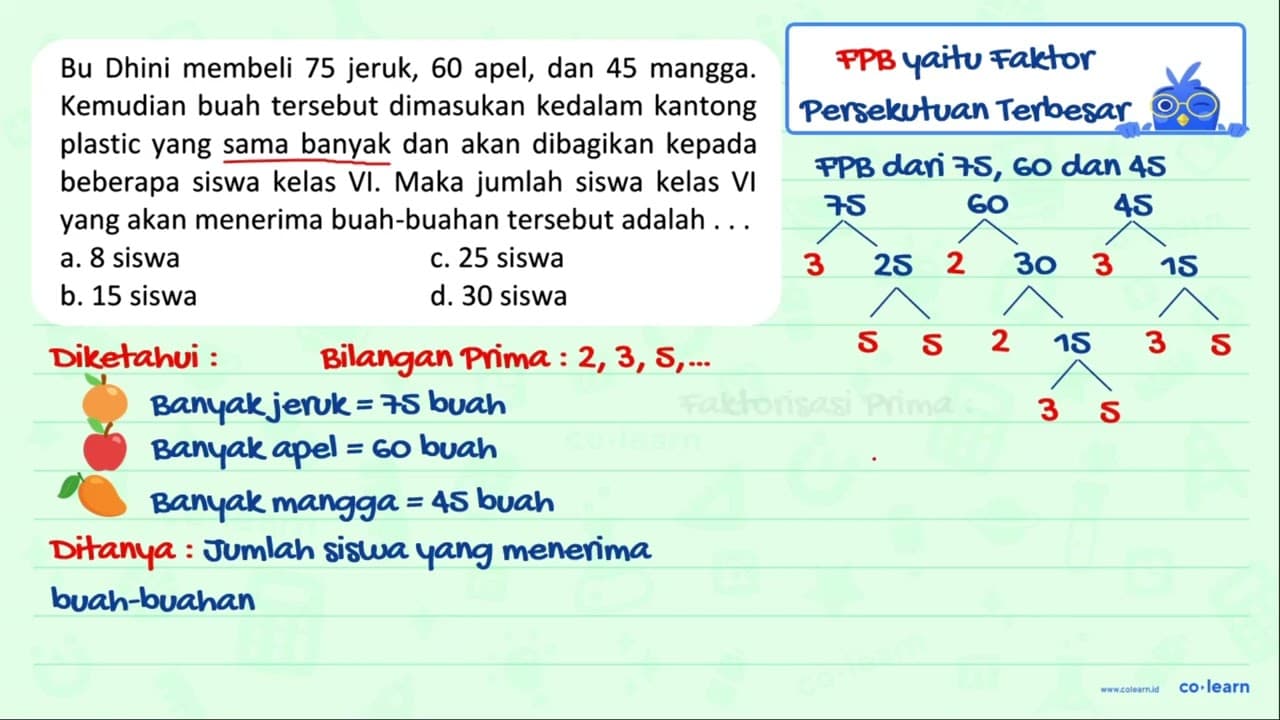 Bu Dhini membeli 75 jeruk, 60 apel, dan 45 mangga.
Kemudian buah tersebut dimasukan kedalam kantong
plastic yang sama banyak dan akan dibagikan kepada
beberapa siswa kelas VI. Maka jumlah siswa kelas VI
yang akan menerima buah-buahan tersebut adalah . . .
a. 8 siswa c. 25 siswa
b. 15 siswa d. 30 siswa
Diketahui : Bilangan Prima : 2, 3, 5,...
Banyak jeruk = 75 buah
Banyak apel = 60 buah
Banyak mangga = 45 buah
Ditanya : Jumlah siswa yang menerima
buah-buahan
FPB yaitu Faktor
Persekutuan Terbesar
FPB dari 75, 60 dan 45
75 60 45
3 25 2 30 3 15
5 5 2 15 3 5
3 5
Faktorisasi Prima :
co·learn
www.colearn.id co·learn